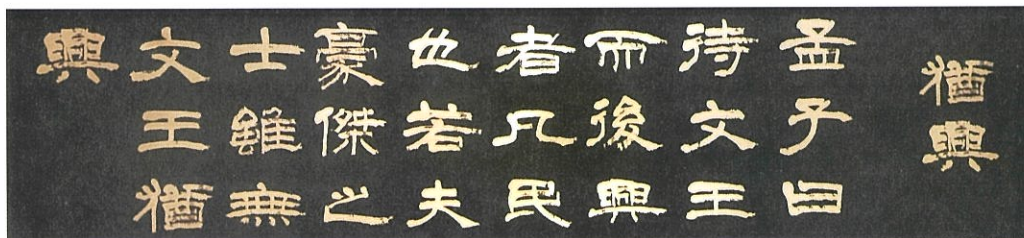 猶興
孟子曰
待文王
而後興
者凡民
也若夫
豪傑之
士雖無
文王猶
興